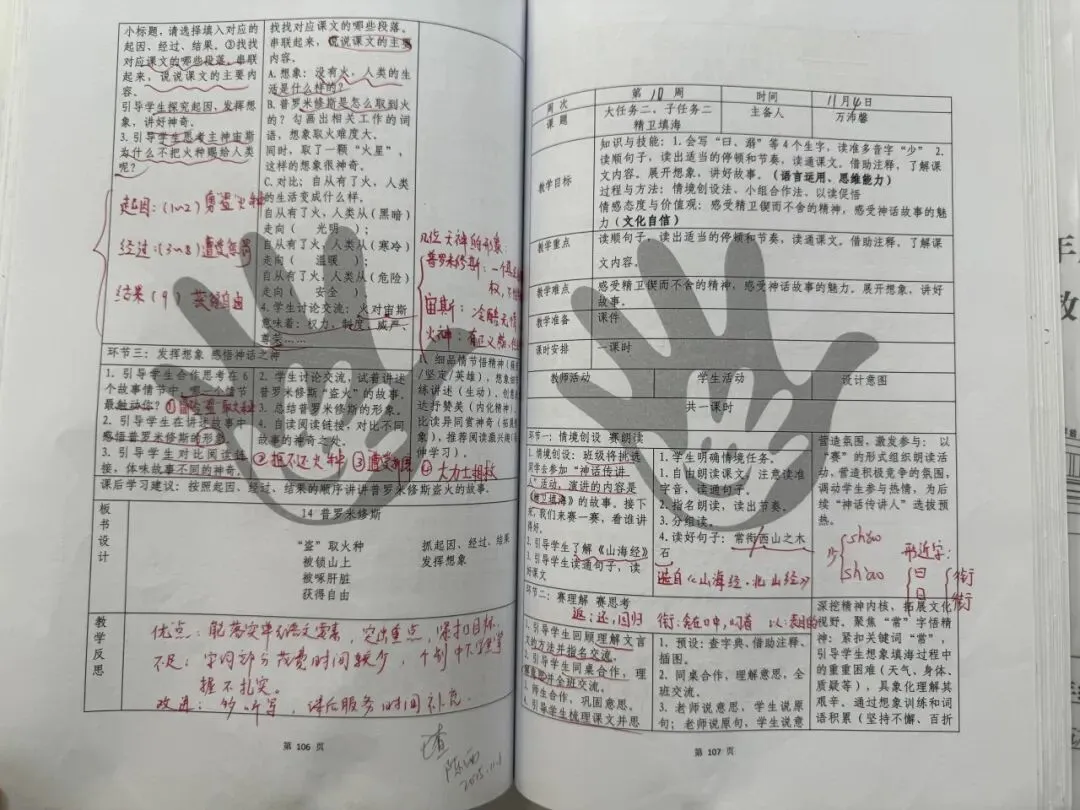 小标题，请选择填入对应的
起因、经过、结果。③找找
对应课文的哪些段落。串联
起来，说说课文的主要内
容。
引导学生探究起因、发挥想
象，讲好神奇。
3. 引导学生思考主神宙斯
为什么不把火种赐给人类
呢？
起因：(1~2) 勇盗火种
经过：(3~8) 遭受惩罚
结果 (9) 获得自由
找找对应课文的哪些段落。
串联起来，说说课文的主要
内容。
A. 想象：没有火，人类的生
活是什么样的？
B. 普罗米修斯是怎么取到火
的？勾画出相关工作的词
语，想象取火难度大。
同时，取了一颗“火星”，
这样的想象很神奇。
C. 对比：自从有了火，人类
的生活变成什么样。
自从有了火，人类从（黑暗）
走向（ 光明 ）；
自从有了火，人类从（寒冷）
走向（ 温暖 ）；
自从有了火，人类从（危险）
走向（ 安全 ）。
4. 学生讨论交流：火对宙斯
意味着：权力、制度、威严、
尊荣……
几位天神的形象：
普罗米修斯：一个
权，不
宙斯：冷酷无情
火神：有正义感，
环节三：发挥想象 感悟神话之神
1. 引导学生合作思考在6
个故事情节中，哪一个情节
最触动你？
2. 引导学生在讲述故事中
感悟普罗米修斯的形象。
3. 引导学生对比阅读链
接，体味故事不同的神奇。
2. 学生讨论交流，试着讲述
普罗米修斯“盗火”的故事。
3. 总结普罗米修斯的形象。
4. 自读阅读链接，对比不同
故事的神奇之处。
②拒不还火种 ③遭受 ④大力士相救
细品情节悟精神
/坚定/英雄），想象
练讲述（生动），创意
达抒赞美（内化精神），
比读异同赏神奇（拓展
象），推荐阅读激兴
伸学习）。
课后学习建议：按照起因、经过、结果的顺序讲讲普罗米修斯盗火的故事。
板书设计
14 普罗米修斯
“盗”取火种
被锁山上
被啄肝脏
获得自由
抓起因、经过、结果
发挥想象
教学反思
优点：能落实单元语文要素，突出重点，紧扣目标。
不足：字词部分花费时间较少，个别
握不扎实。
改进：多听写，课后服务时间补充。
2025.11.1
第 106 页
周次
第 10 周
时间
11月4日
课题
大任务二、子任务二
精卫填海
主备人
万沛馨
教学目标
知识与技能：1. 会写“曰、溺”等4个生字，读准多音字“少” 2.
读顺句子，读出适当的停顿和节奏，读通课文。借助注释，了解课
文内容。展开想象，讲好故事。（语言运用、思维能力）
过程与方法：情境创设法、小组合作法、以读促悟
情感态度与价值观：感受精卫锲而不舍的精神，感受神话故事的魅
力（文化自信）
教学重点
读顺句子，读出适当的停顿和节奏，读通课文。借助注释，了解课
文内容。
教学难点
感受精卫锲而不舍的精神，感受神话故事的魅力。展开想象，讲好
故事。
教学准备
课件
课时安排
一课时
教师活动
学生活动
设计意图
共一课时
环节一：情境创设 赛朗读
1. 情境创设：班级将挑选
同学去参加“神话传讲
人”活动，演讲的内容是
《精卫填海》的故事。接下
来，我们来赛一赛，看谁讲
得好。
2. 引导学生了解《山海经》
3. 引导学生读通句子，读
好课文
1. 学生明确情境任务。
1. 自由朗读课文，注意读准
字音，读通句子。
2. 指名朗读，读出节奏。
3. 分组读。
4. 读好句子：常衔西山之木
石
选自《山海经·北山经》
营造氛围，激发参与：以
“赛”的形式组织朗读活
动，营造积极竞争的氛围，
调动学生参与热情，为后
续“神话传讲人”选拔预
热。
少 shào
shǎo
形近字：
曰
日
衔
环节二：赛理解 赛思考
返：还，回归 衔：含在口中，叼着
1. 引导学生回顾理解文言
文的方法并指名交流。
2. 引导学生同桌合作，理
解意思并全班交流。
3. 师生合作，巩固意思。
4. 引导学生梳理课文并思
1. 预设：查字典、借助注释、
插图。
2. 同桌合作，理解意思，全
班交流。
3. 老师说意思，学生说原
句；老师说原句，学生说意
深挖精神内核，拓展文化
视野。聚焦“常”字悟精
神：紧扣关键词“常”，
引导学生想象填海过程中
的重重困难（天气、身体、
质疑等），具象化理解其
艰辛。通过想象训练和词
语积累（坚持不懈、百折
第 107 页